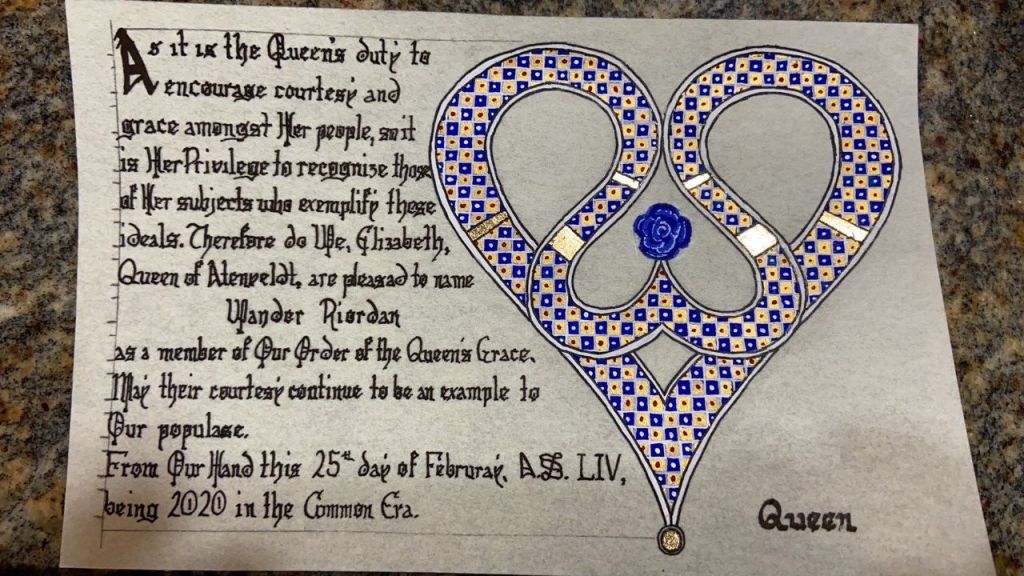 As it is the Queen's duty to
encourage courtesy and
grace amongst Her people, so it
is Her Privilege to recognize those
of Her subjects who exemplify these
ideals. Therefore do We, Elizabeth,
Queen of Atenveldt, are pleasad to name
Wander Riordan
as a member of Our Order of the Queen's Grace.
May their courtesy continue to be an example to
Our populase.
From Our Hand this 25th day of Februray, A.S. LIV,
being 2020 in the Common Era.
Queen